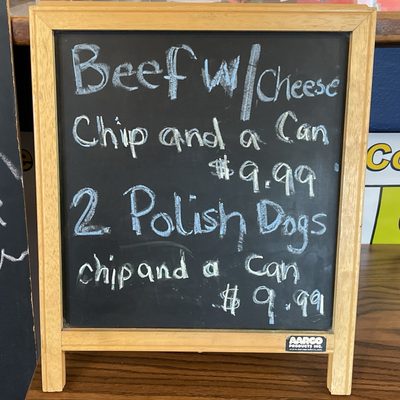 Beef w/ Cheese
Chip and a Can
$9.99
2 Polish Dogs
chip and a can
$9.99
AARCO
PRODUCTS INC.